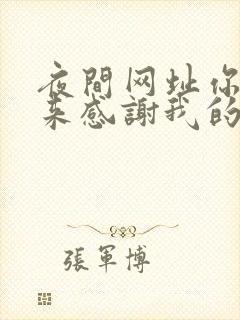 夜間网址你
来感謝我的
張軍博